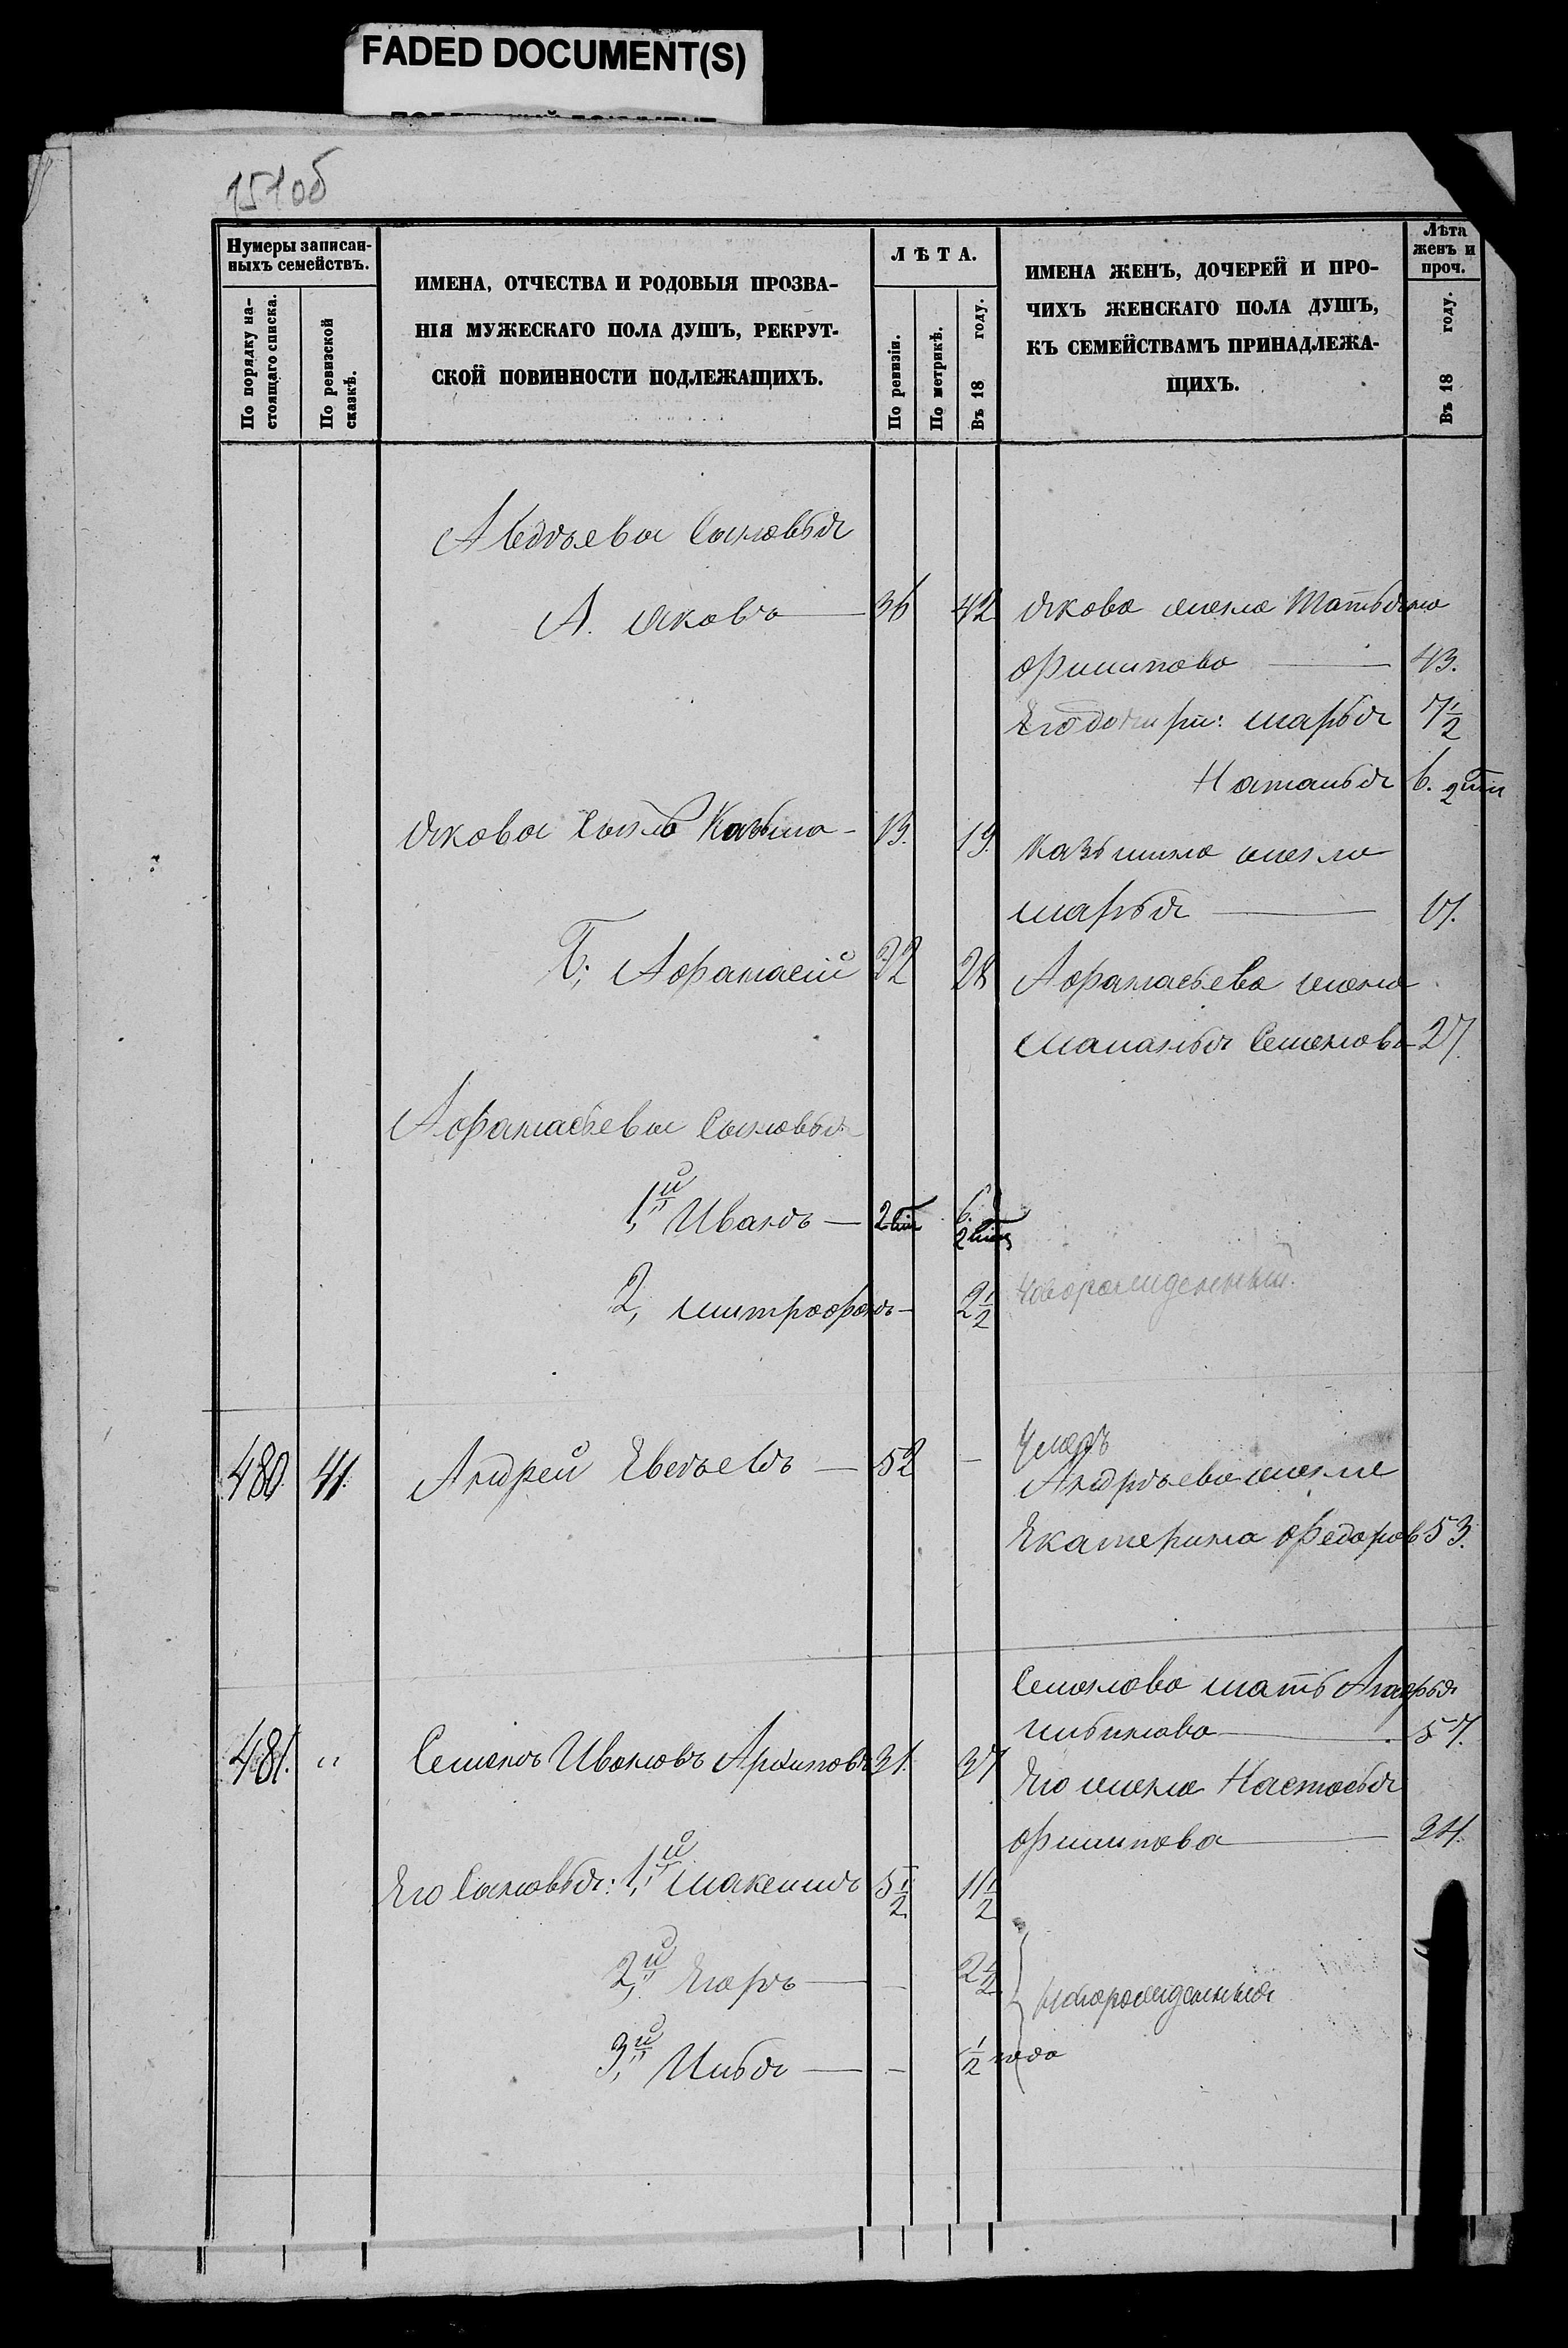 FADED DOCUMENT(S)
151об
Нумеры записан-
ныхъ семействъ.
По порядку на-
стоящаго списка.
По ревизской
сказкѣ.
ИМЕНА, ОТЧЕСТВА И РОДОВЫЯ ПРОЗВА-
НІЯ МУЖЕСКАГО ПОЛА ДУШЪ, РЕКРУТ-
СКОЙ ПОВИННОСТИ ПОДЛЕЖАЩИХЪ.
ЛѢТА.
По ревизіи.
По метрикѣ.
Въ 18 году.
ИМЕНА ЖЕНЪ, ДОЧЕРЕЙ И ПРО-
ЧИХЪ ЖЕНСКАГО ПОЛА ДУШЪ,
КЪ СЕМЕЙСТВАМЪ ПРИНАДЛЕЖА-
ЩИХЪ.
Лѣта
женъ и
проч.
Въ 18 году.
Сыновья
А. Яковъ 36 42 Якова жена Татьяна
Филипова 43.
Его дочери: Марья 7½
Наталья 6.
Якова Сынъ Казьма 13. 19. Казьмина жена
Марья 17.
Б, Афанасій 22 28 Афанасьева жена
Маланья Семенова 27.
Афанасьевы Сыновья
1й Иванъ
2, Митрофанъ 2½ Новорожденный.
Умеръ
480. 41. Андрей 52 - Андрѣева жена
Екатерина Федоров 53.
Семенова мать
57.
481. " Семенъ Ивановъ Архиповъ 31. 37 Его жена Настасья
Филипова 34.
Его Сыновья: 1й Максимъ 5½ 11½
2й Егоръ - 2½ Новорожденныя
3й Илья - ½ года